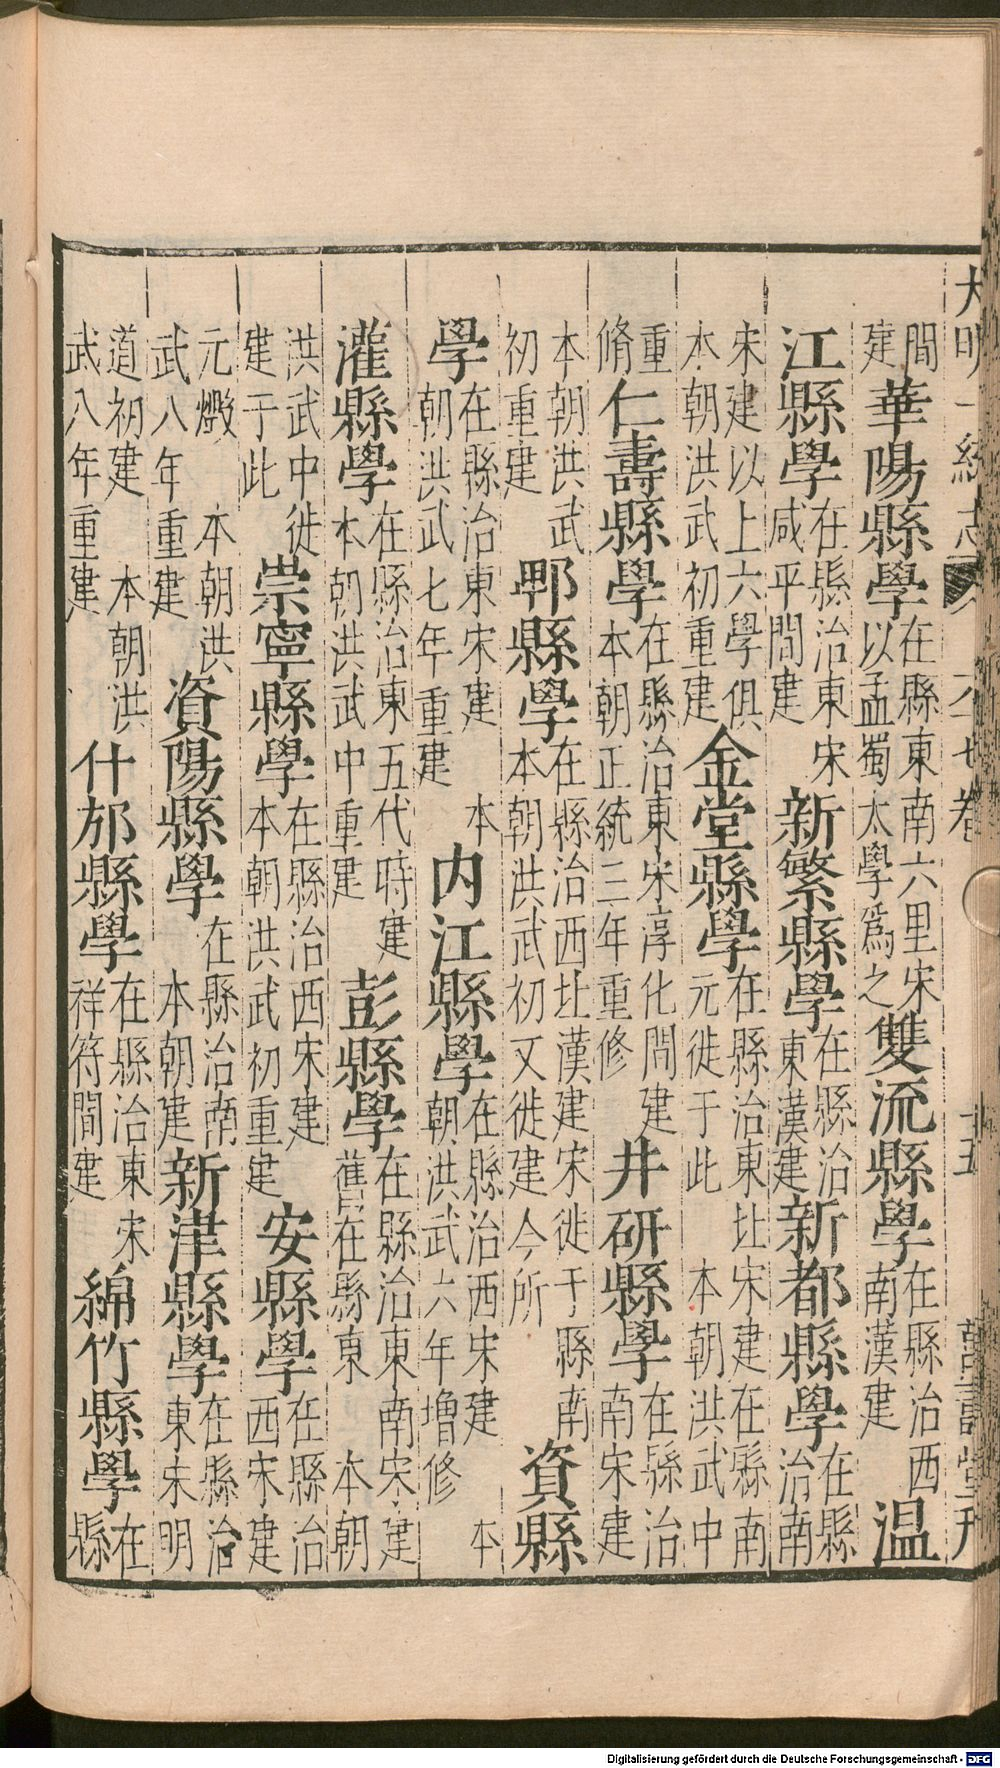 大明一統志 六十七卷 十五 慎獨堂刊
間建華陽縣學在縣東南六里宋以孟蜀太學爲之雙流縣學在縣治西南漢建温
江縣學在縣治東宋咸平間建新繁縣學在縣治東漢建新都縣學在縣治南
宋建以上六學俱本朝洪武初重建金堂縣學在縣治東北宋建在縣南元徙于此 本朝洪武中
重脩仁壽縣學在縣治東宋淳化間建本朝正統三年重修井研縣學在縣治南宋建
本朝洪武初重建郫縣學在縣治西北漢建宋徙于縣南本朝洪武初又徙建今所資縣
學在縣治東宋建 本朝洪武七年重建内江縣學在縣治西宋建 本朝洪武六年增修
灌縣學在縣治東五代時建本朝洪武中重建彭縣學在縣治東南宋建舊在縣東 本朝
洪武中徙建于此崇寧縣學在縣治西宋建本朝洪武初重建安縣學在縣治西宋建
元燬 本朝洪武八年重建資陽縣學在縣治南本朝建新津縣學在縣治東宋明
道初建 本朝洪武八年重建什邡縣學在縣治東宋祥符間建綿竹縣學在縣
Digitalisierung gefördert durch die Deutsche Forschungsgemeinschaft - DFG